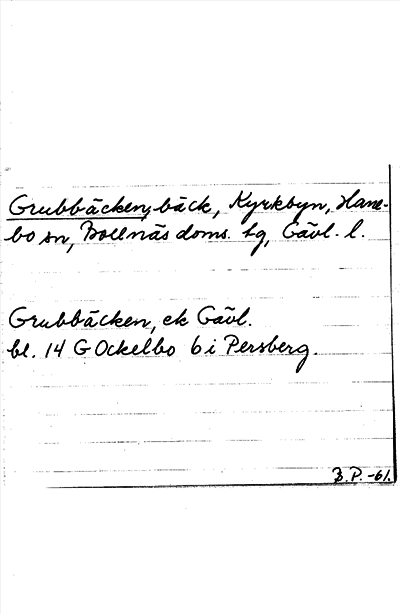 Grubbäcken, bäck, Kyrkbyn, Hane-
bo sn, Bollnäs doms. tg, Gävl. l.
Grubbäcken, ek Gävl.
bl. 14 G Ockelbo b i Persberg.
B.P. -61.